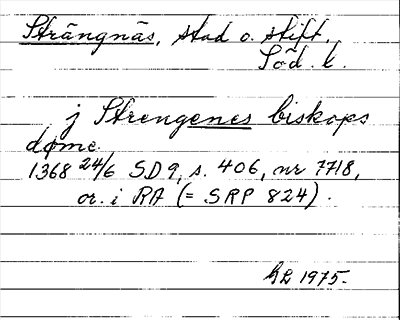 Strängnäs, stad o. stift.
Söd. l.
j Strengenes biskops
døme
1368 24/6 SD 9, s. 406, nr 7718,
or. i RA (= SRP 824).
1975.